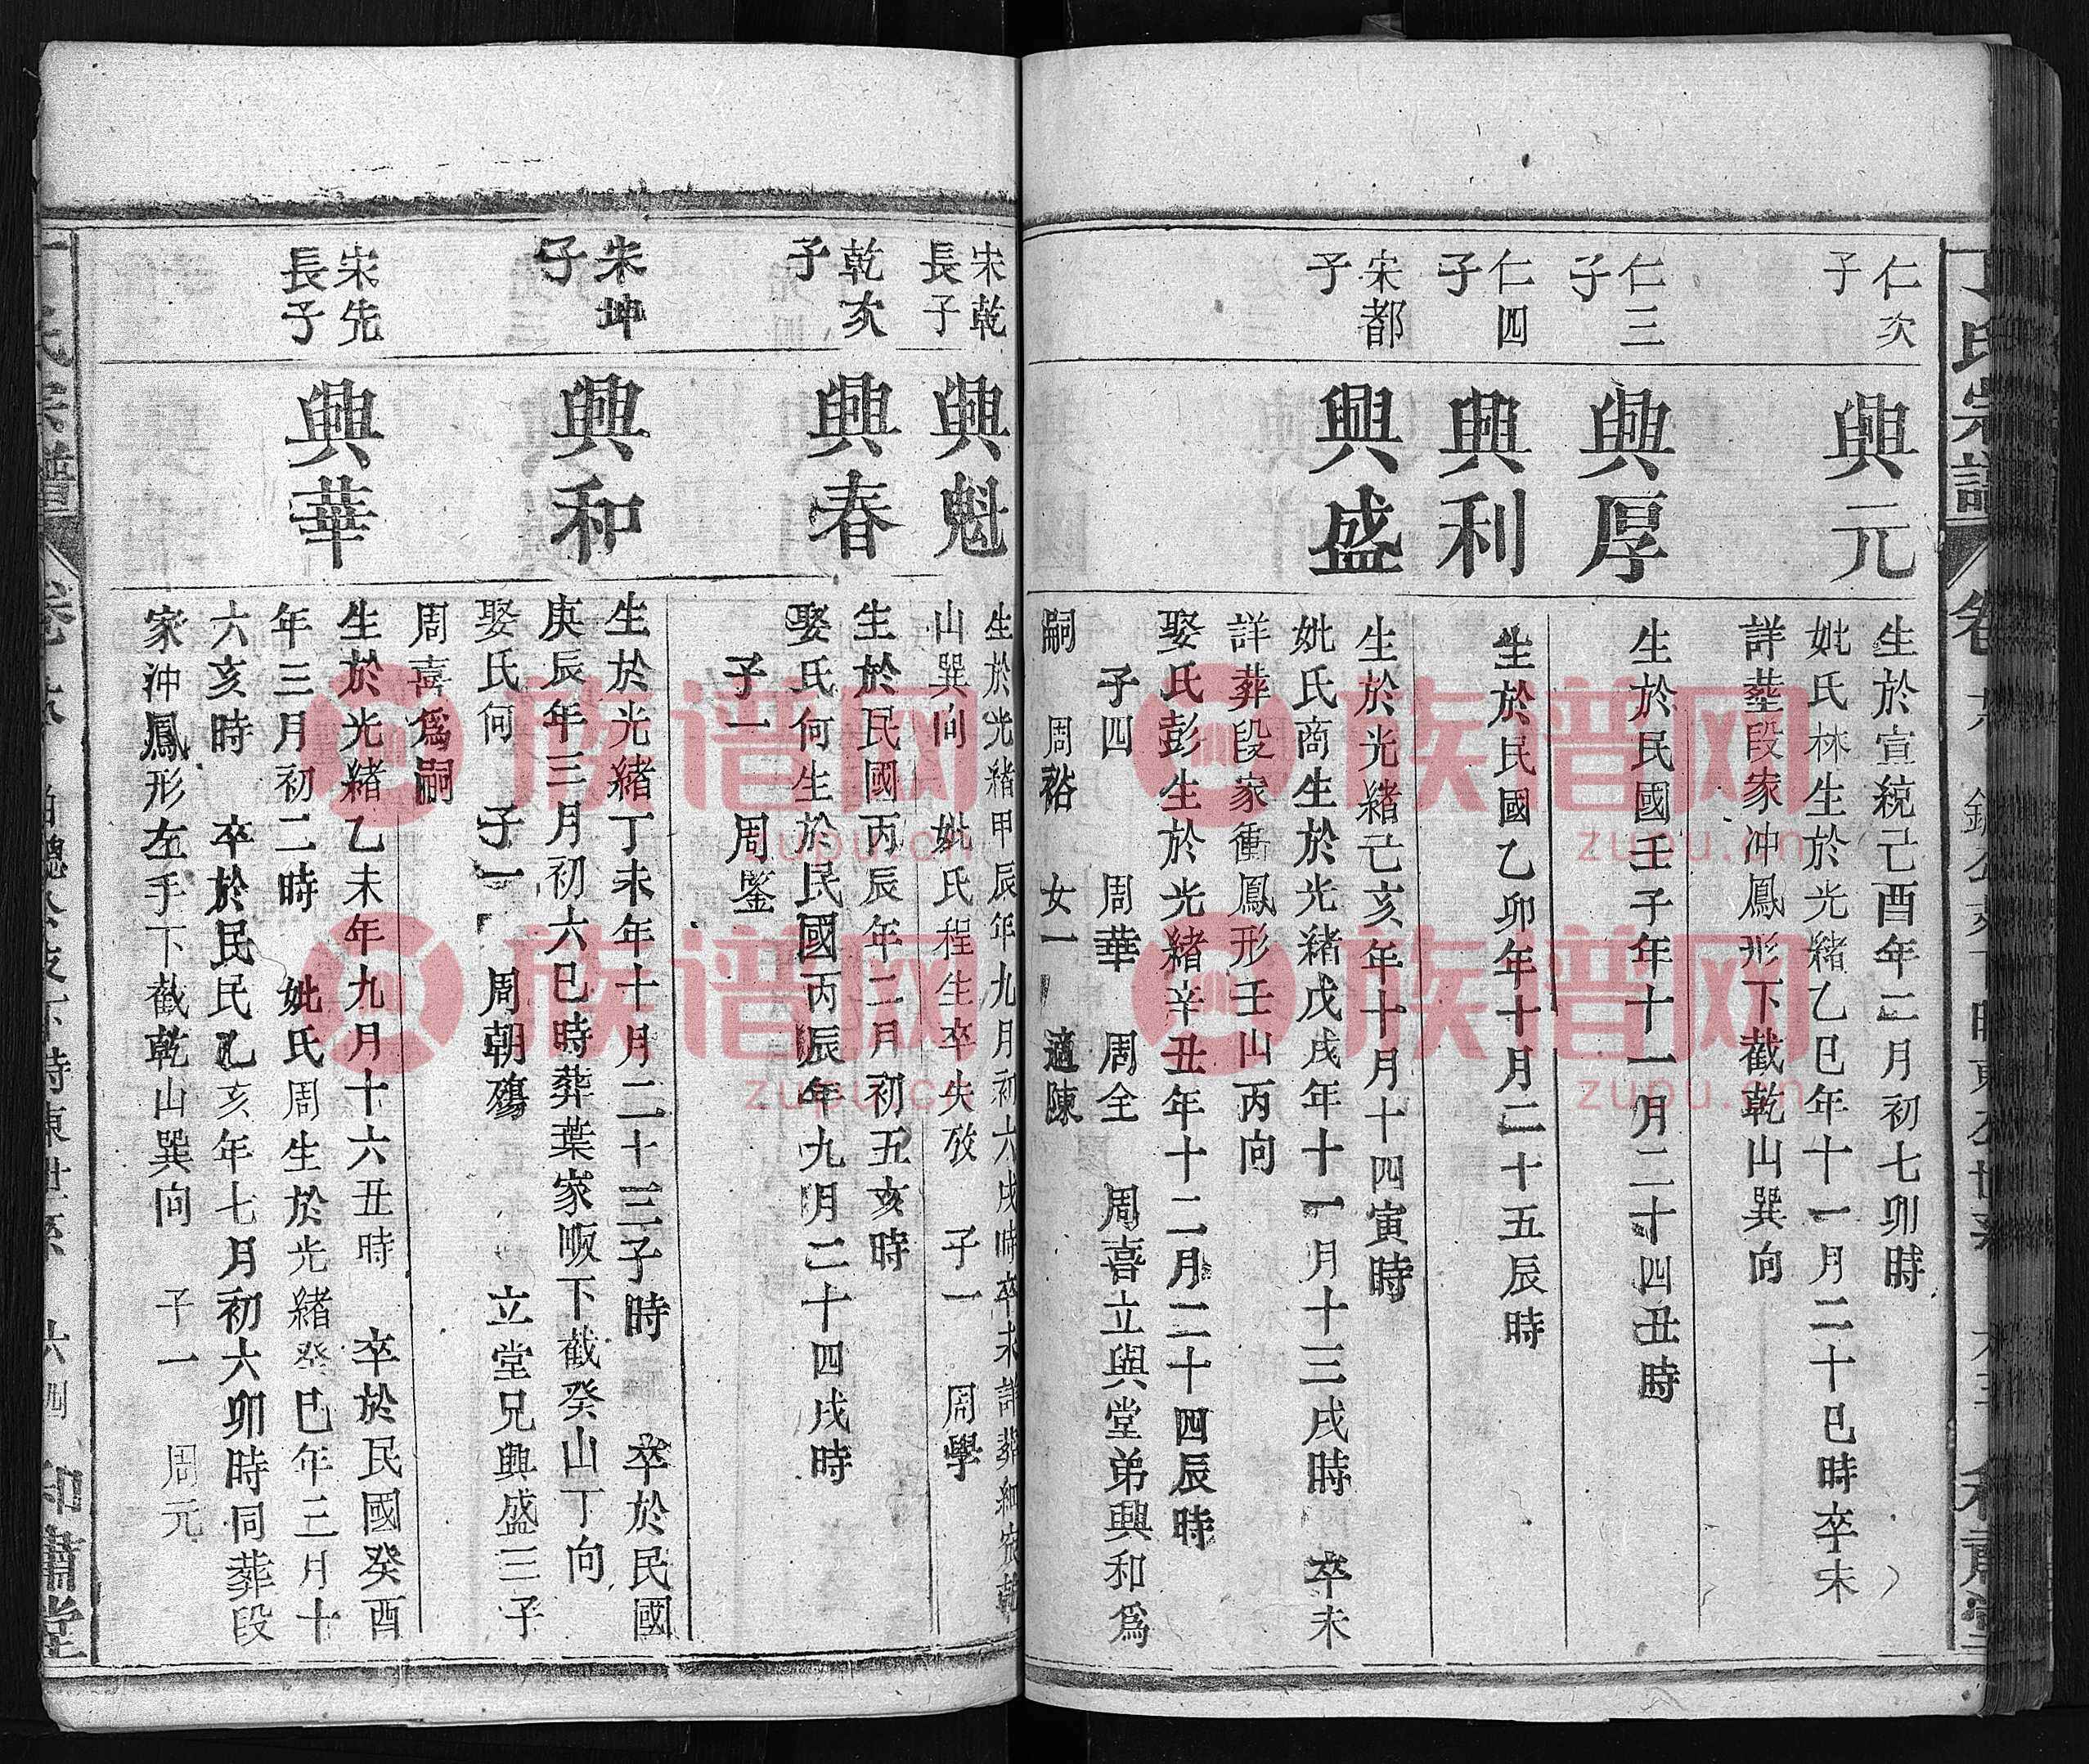 仁次
子
興元
生於宣統己酉年二月初七卯時
妣氏林生於光緒乙巳年十一月二十巳時卒未
詳塟段家冲鳳形下截乾山巽向
仁三
子
興厚
生於民國壬子年十一月二十四丑時
仁四
子
興利
生於民國乙卯年十月二十五辰時
宋都
子
興盛
生於光緒己亥年十月十四寅時
妣氏商生於光緒戊戌年十一月十三戌時 卒未
詳葬段家衝鳳形壬山丙向
娶氏彭生於光緒辛丑年十二月二十四辰時
子四 周華 周全 周喜立與堂弟興和為
嗣 周裕 女一 適陳
宋乾
長子
興魁
生於光緒甲辰年九月初六戌時卒未詳葬 乾
山巽向 妣氏程生卒失攷 子一 周學
乾次
子
興春
生於民國丙辰年二月初五亥時
娶氏何生於民國丙辰年九月二十四戌時
子一 周鑒
宋坤
子
興和
生於光緒丁未年十月二十三子時 卒於民國
庚辰年三月初六巳時葬葉家畈下截癸山丁向
娶氏何 子一 周朝殤 立堂兄興盛三子
周喜為嗣
宋先
長子
興華
生於光緒乙未年九月十六丑時 卒於民國癸酉
年三月初二時 妣氏周生於光緒癸巳年三月十
六亥時 卒於民民乙亥年七月初六卯時同葬段
家冲鳳形左手下截乾山巽向 子一 周元
氏宗譜 卷 六四 和肅堂
族谱网
zupu.cn
族谱网
zupu.cn
族谱网
zupu.cn
族谱网
zupu.cn